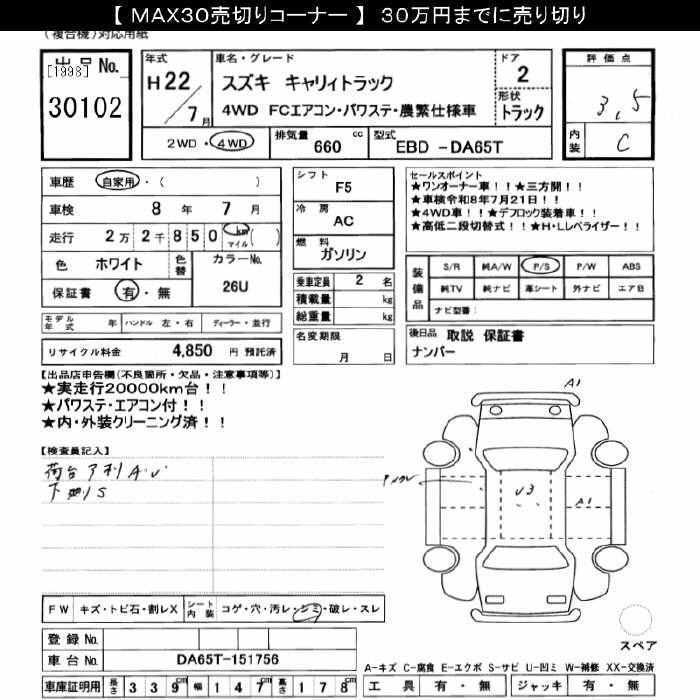 【 MAX30売切りコーナー 】 30万円までに売り切り
(複合機)対応用紙
出品No.
[1998]
30102
年式
H22/7月
車名・グレード
スズキ キャリィトラック
4WD FCエアコン・パワステ・農繁仕様車
ドア
2
形状
トラック
評価点
3.5
内装
C
2WD・4WD
排気量 660 cc
型式 EBD -DA65T
車歴 自家用・( )
車検 8 年 7 月
走行 2万 2千 8 5 0 km マイル ( )
色 ホワイト
色替
カラーNo.
26U
保証書 有・無
シフト
F5
冷房
AC
燃料
ガソリン
乗車定員 2 名
積載量 kg
総重量 kg
名変期限
月 日
セールスポイント
★ワンオーナー車!!★三方開!!
★車検令和8年7月21日!!
★4WD車!!★デフロック装着車!!
★高低二段切替式!!★H・Lレベライザー!!
装備品
S/R 純A/W P/S P/W ABS
純TV 純ナビ 革シート 外ナビ エアB
ナビ型番:
モデル年式 年 ハンドル 左・右 ディーラー・並行
リサイクル料金 4,850 円 預託済
後日品 取説 保証書
ナンバー
【出品店申告欄(不良箇所・欠品・注意事項等)】
★実走行20000km台!!
★パワステ・エアコン付!!
★内・外装クリーニング済!!
【検査員記入】
荷台
下廻りS
A1
U3
A1
FW キズ・トビ石・割レX
シート内装 コゲ・穴・汚レ・シミ・破レ・スレ
登録No.
車台No. DA65T-151756
スペア
A-キズ C-腐食 E-エクボ S-サビ U-凹ミ W-補修 XX-交換済
車庫証明用 長さ 3 3 9cm 幅 1 4 7cm 高さ 1 7 8cm
工具 有・無 ジャッキ 有・無